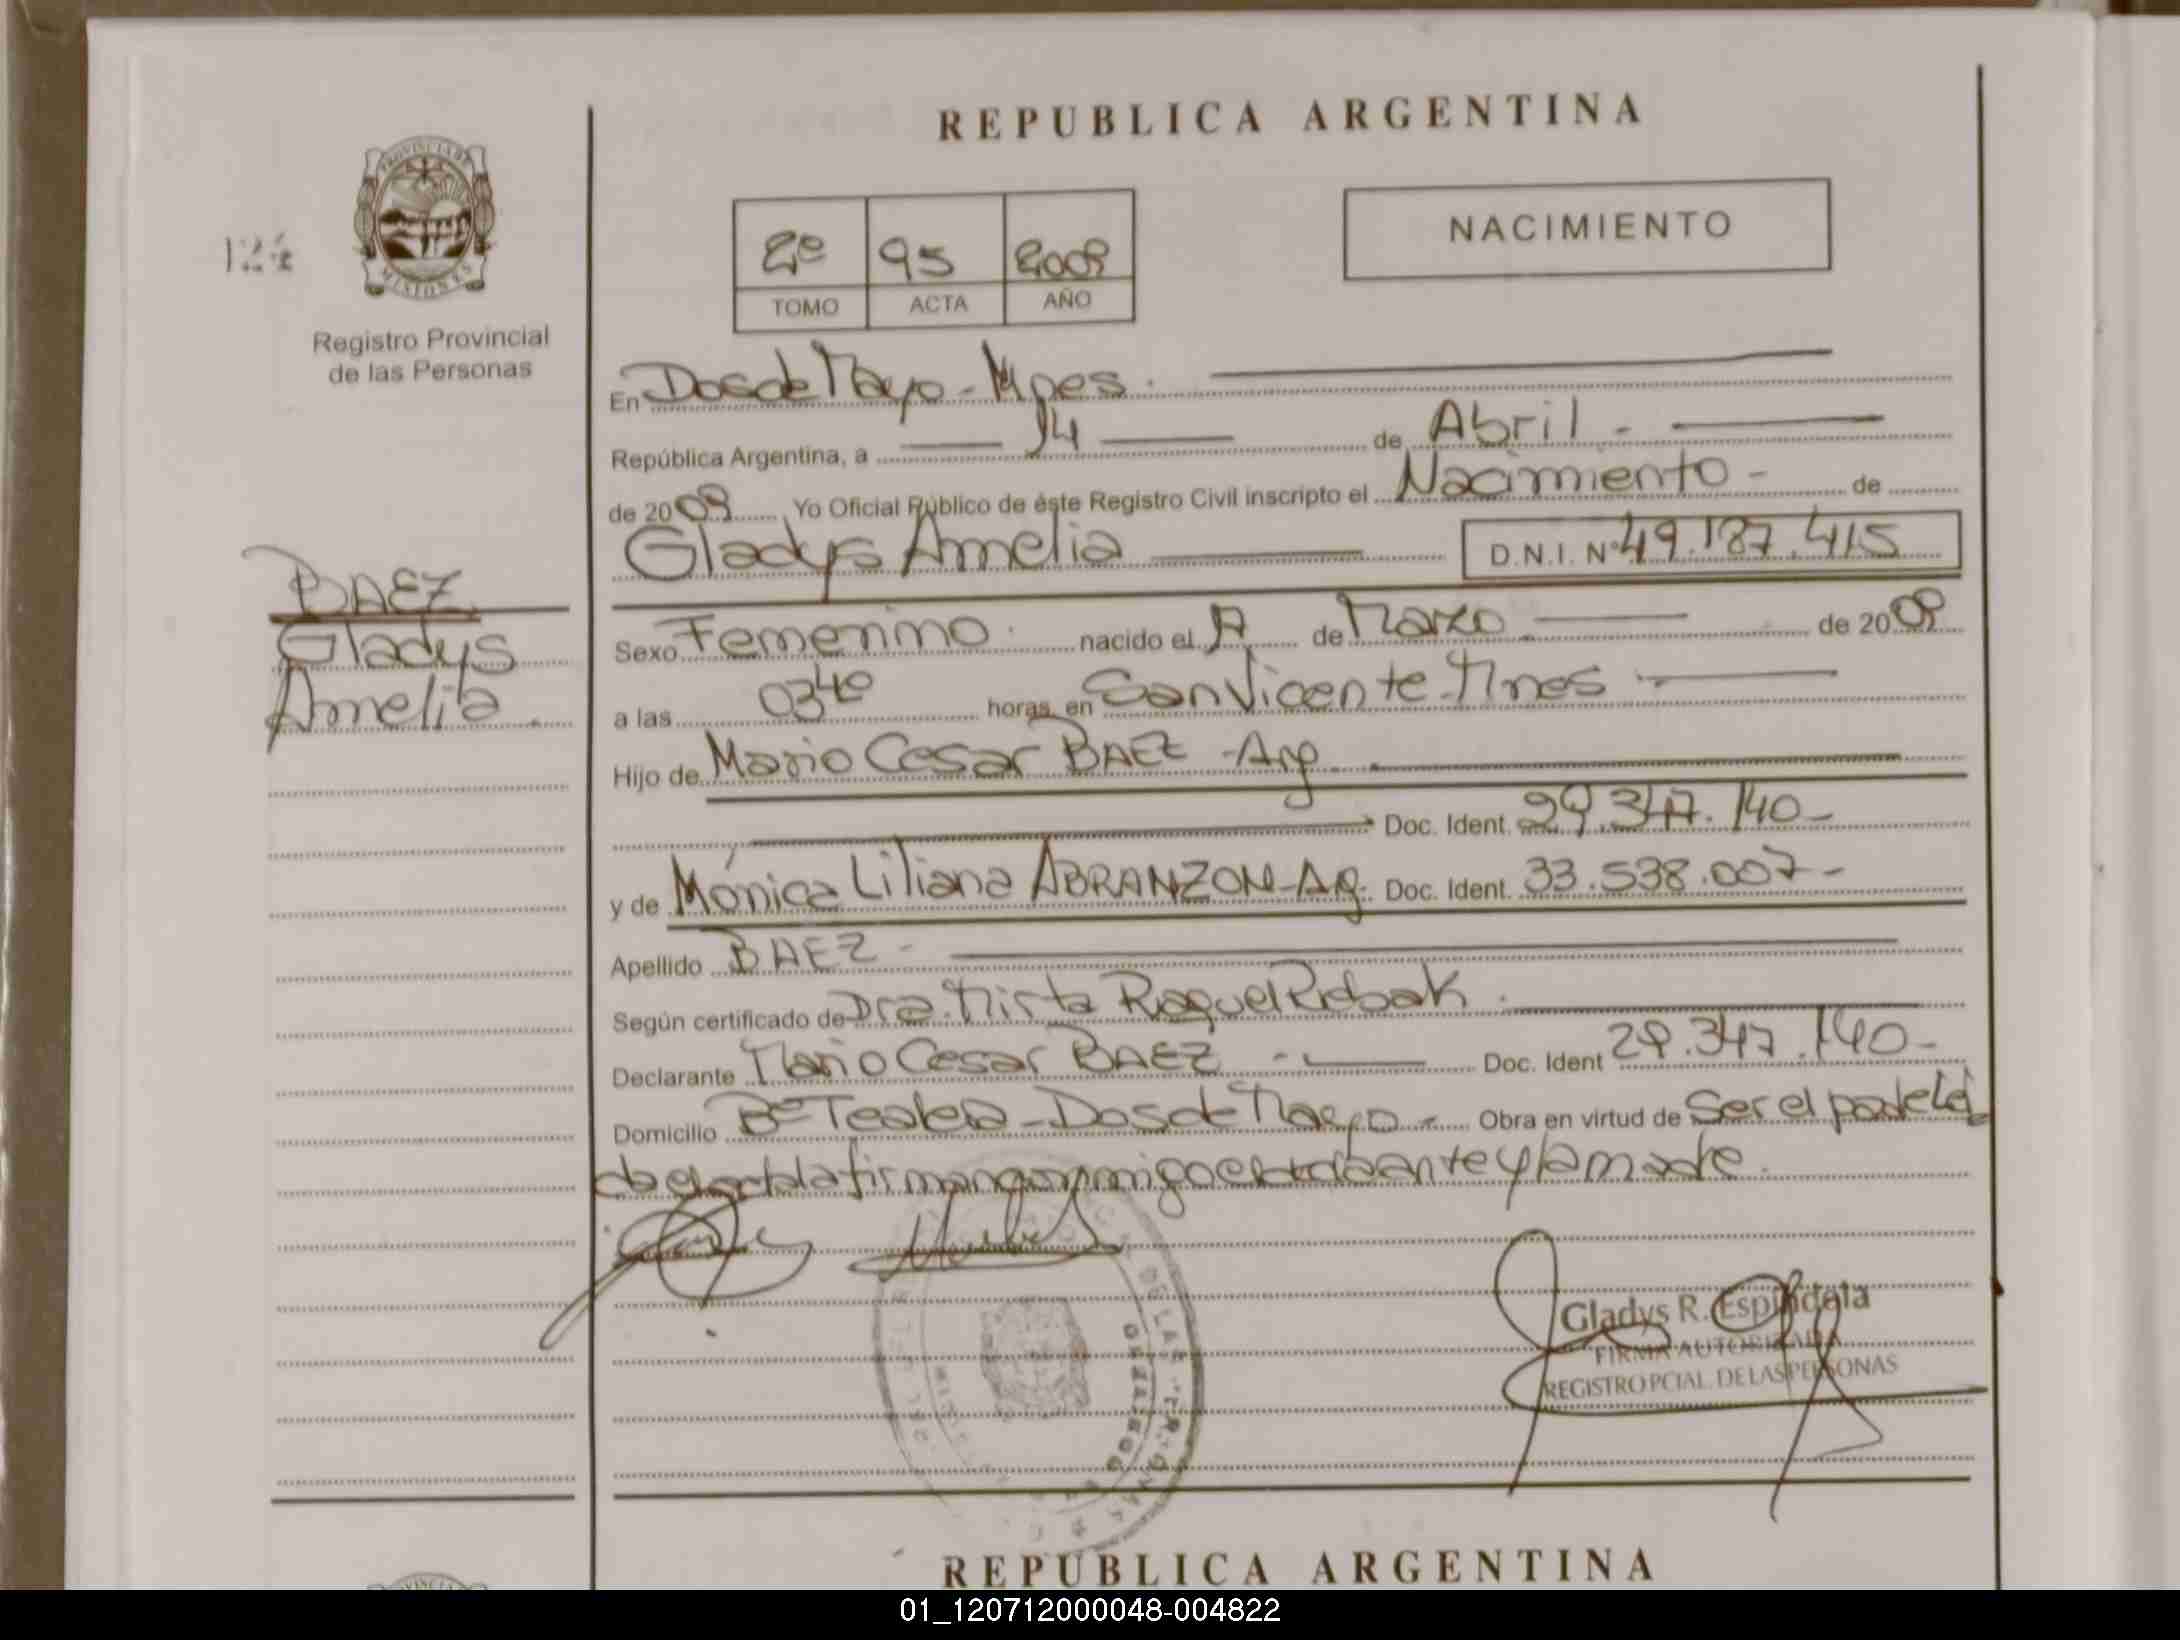 REPUBLICA ARGENTINA
PROVINCIA DE
MISIONES
Registro Provincial
de las Personas
2º 95 2009
TOMO ACTA AÑO
NACIMIENTO
En Dos de Mayo - Mnes.
República Argentina, a 14 de Abril -
de 2009 Yo Oficial Público de éste Registro Civil inscripto el Nacimiento - de
Gladys Amelia D.N.I. Nº 49.187.415
BAEZ
Gladys
Amelia.
Sexo Femenino. nacido el de Marzo de 2009
a las 03⁴⁰ horas, en San Vicente - Mnes
Hijo de Mario Cesar BAEZ - Arg.
Doc. Ident. 29.347.140-
y de Mónica Liliana ABRANZON-Arg. Doc. Ident. 33.538.007-
Apellido BAEZ -
Según certificado de Dra. Mirta Raquel
Declarante Mario Cesar BAEZ - Doc. Ident 29.347.140-
Domicilio Bº - Dos de Mayo - Obra en virtud de Ser el padre
firman conmigo el declarante y la madre.
Gladys R. Espindola
FIRMA AUTORIZADA
REGISTRO PCIAL. DE LAS PERSONAS
REPUBLICA ARGENTINA
01_120712000048-004822